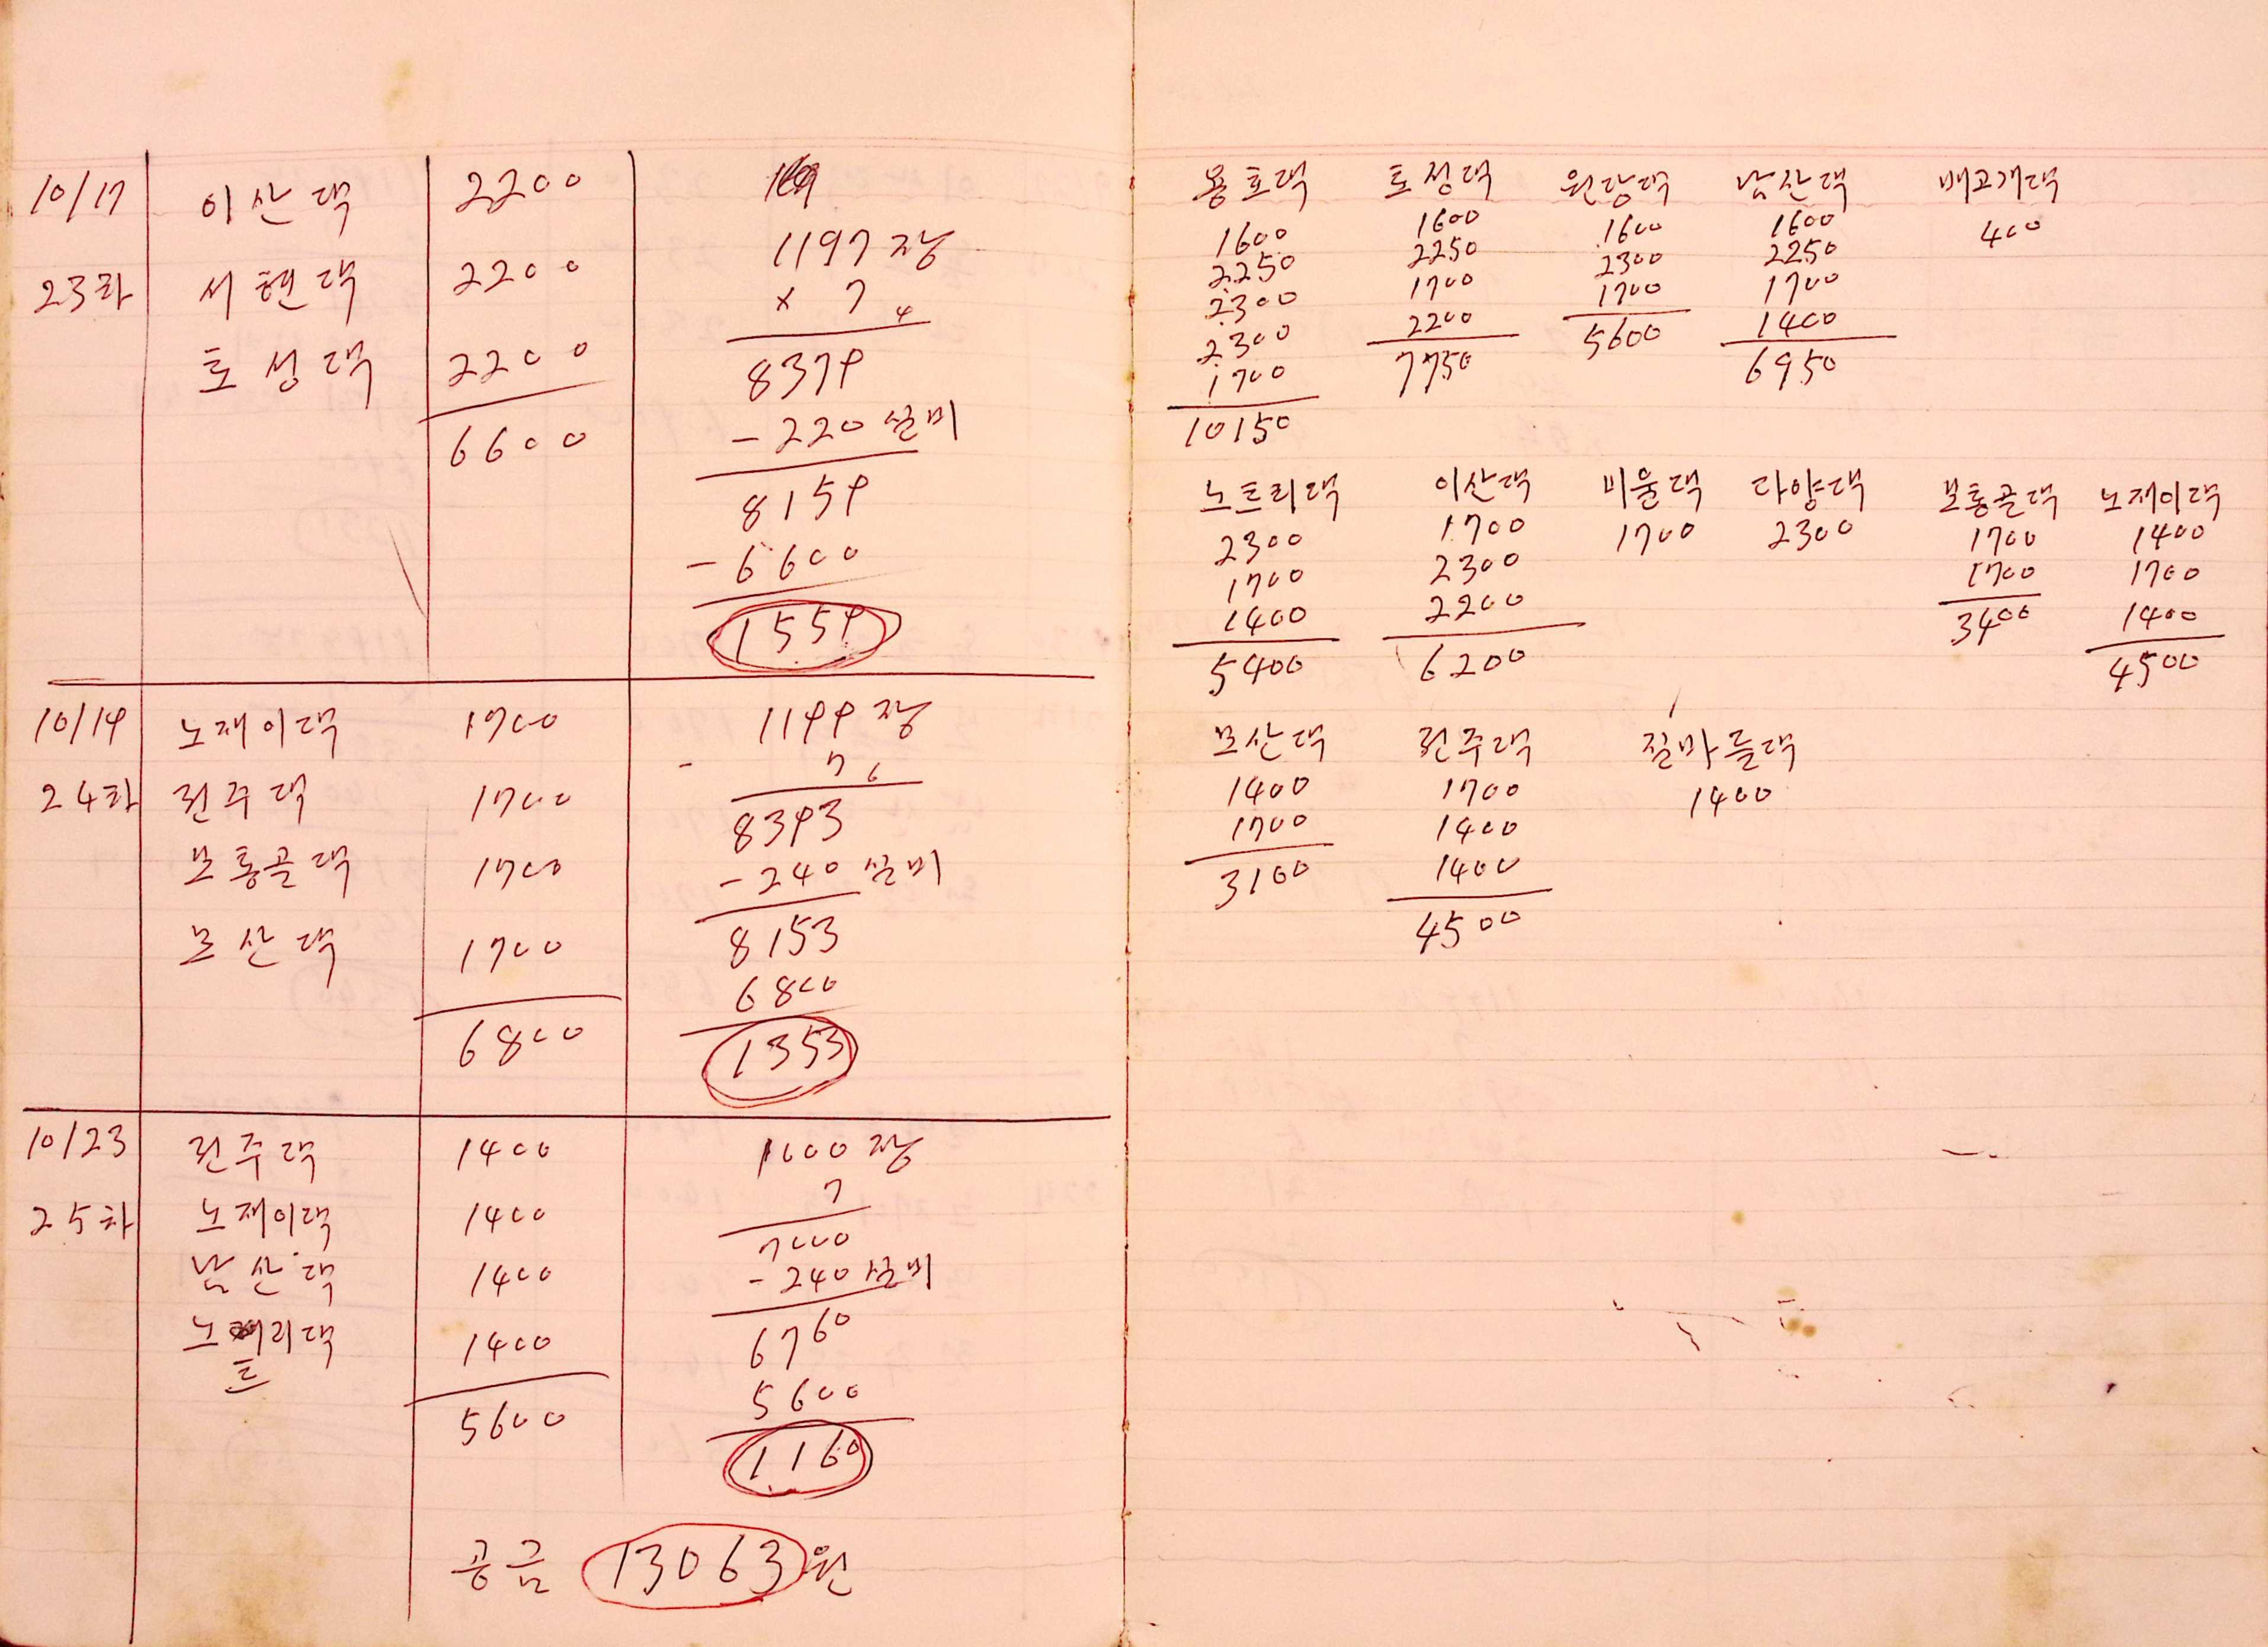 10/17 이산댁 2200
1197장
23차 서현댁 2200
× 7
토성댁 2200
8379
6600
-220 실비
8159
-6600
1559
10/19 노재이댁 1700
1199장
- 7
24차 진주댁 1700
8393
보통골댁 1700
-240 실비
모산댁 1700
8153
6800
6800
1353
10/23 진주댁 1400
1000장
25차 노재이댁 1400
7
7000
남산댁 1400
-240 실비
노트리댁 1400
6760
5600
5600
1160
공금 13063원
용호댁 토성댁 원당댁 남산댁 배고개댁
1600 1600 1600 1600 400
2250 2250 2300 2250
2300 1700 1700 1700
2300 2200 5600 1400
1700 7750 6950
10150
노트리댁 이산댁 미울댁 다양댁 보통골댁 노재이댁
2300 1700 1700 2300 1700 1400
1700 2300 1700 1700
1400 2200 3400 1400
5400 6200 4500
모산댁 진주댁 질마들댁
1400 1700 1400
1700 1400
3100 1400
4500